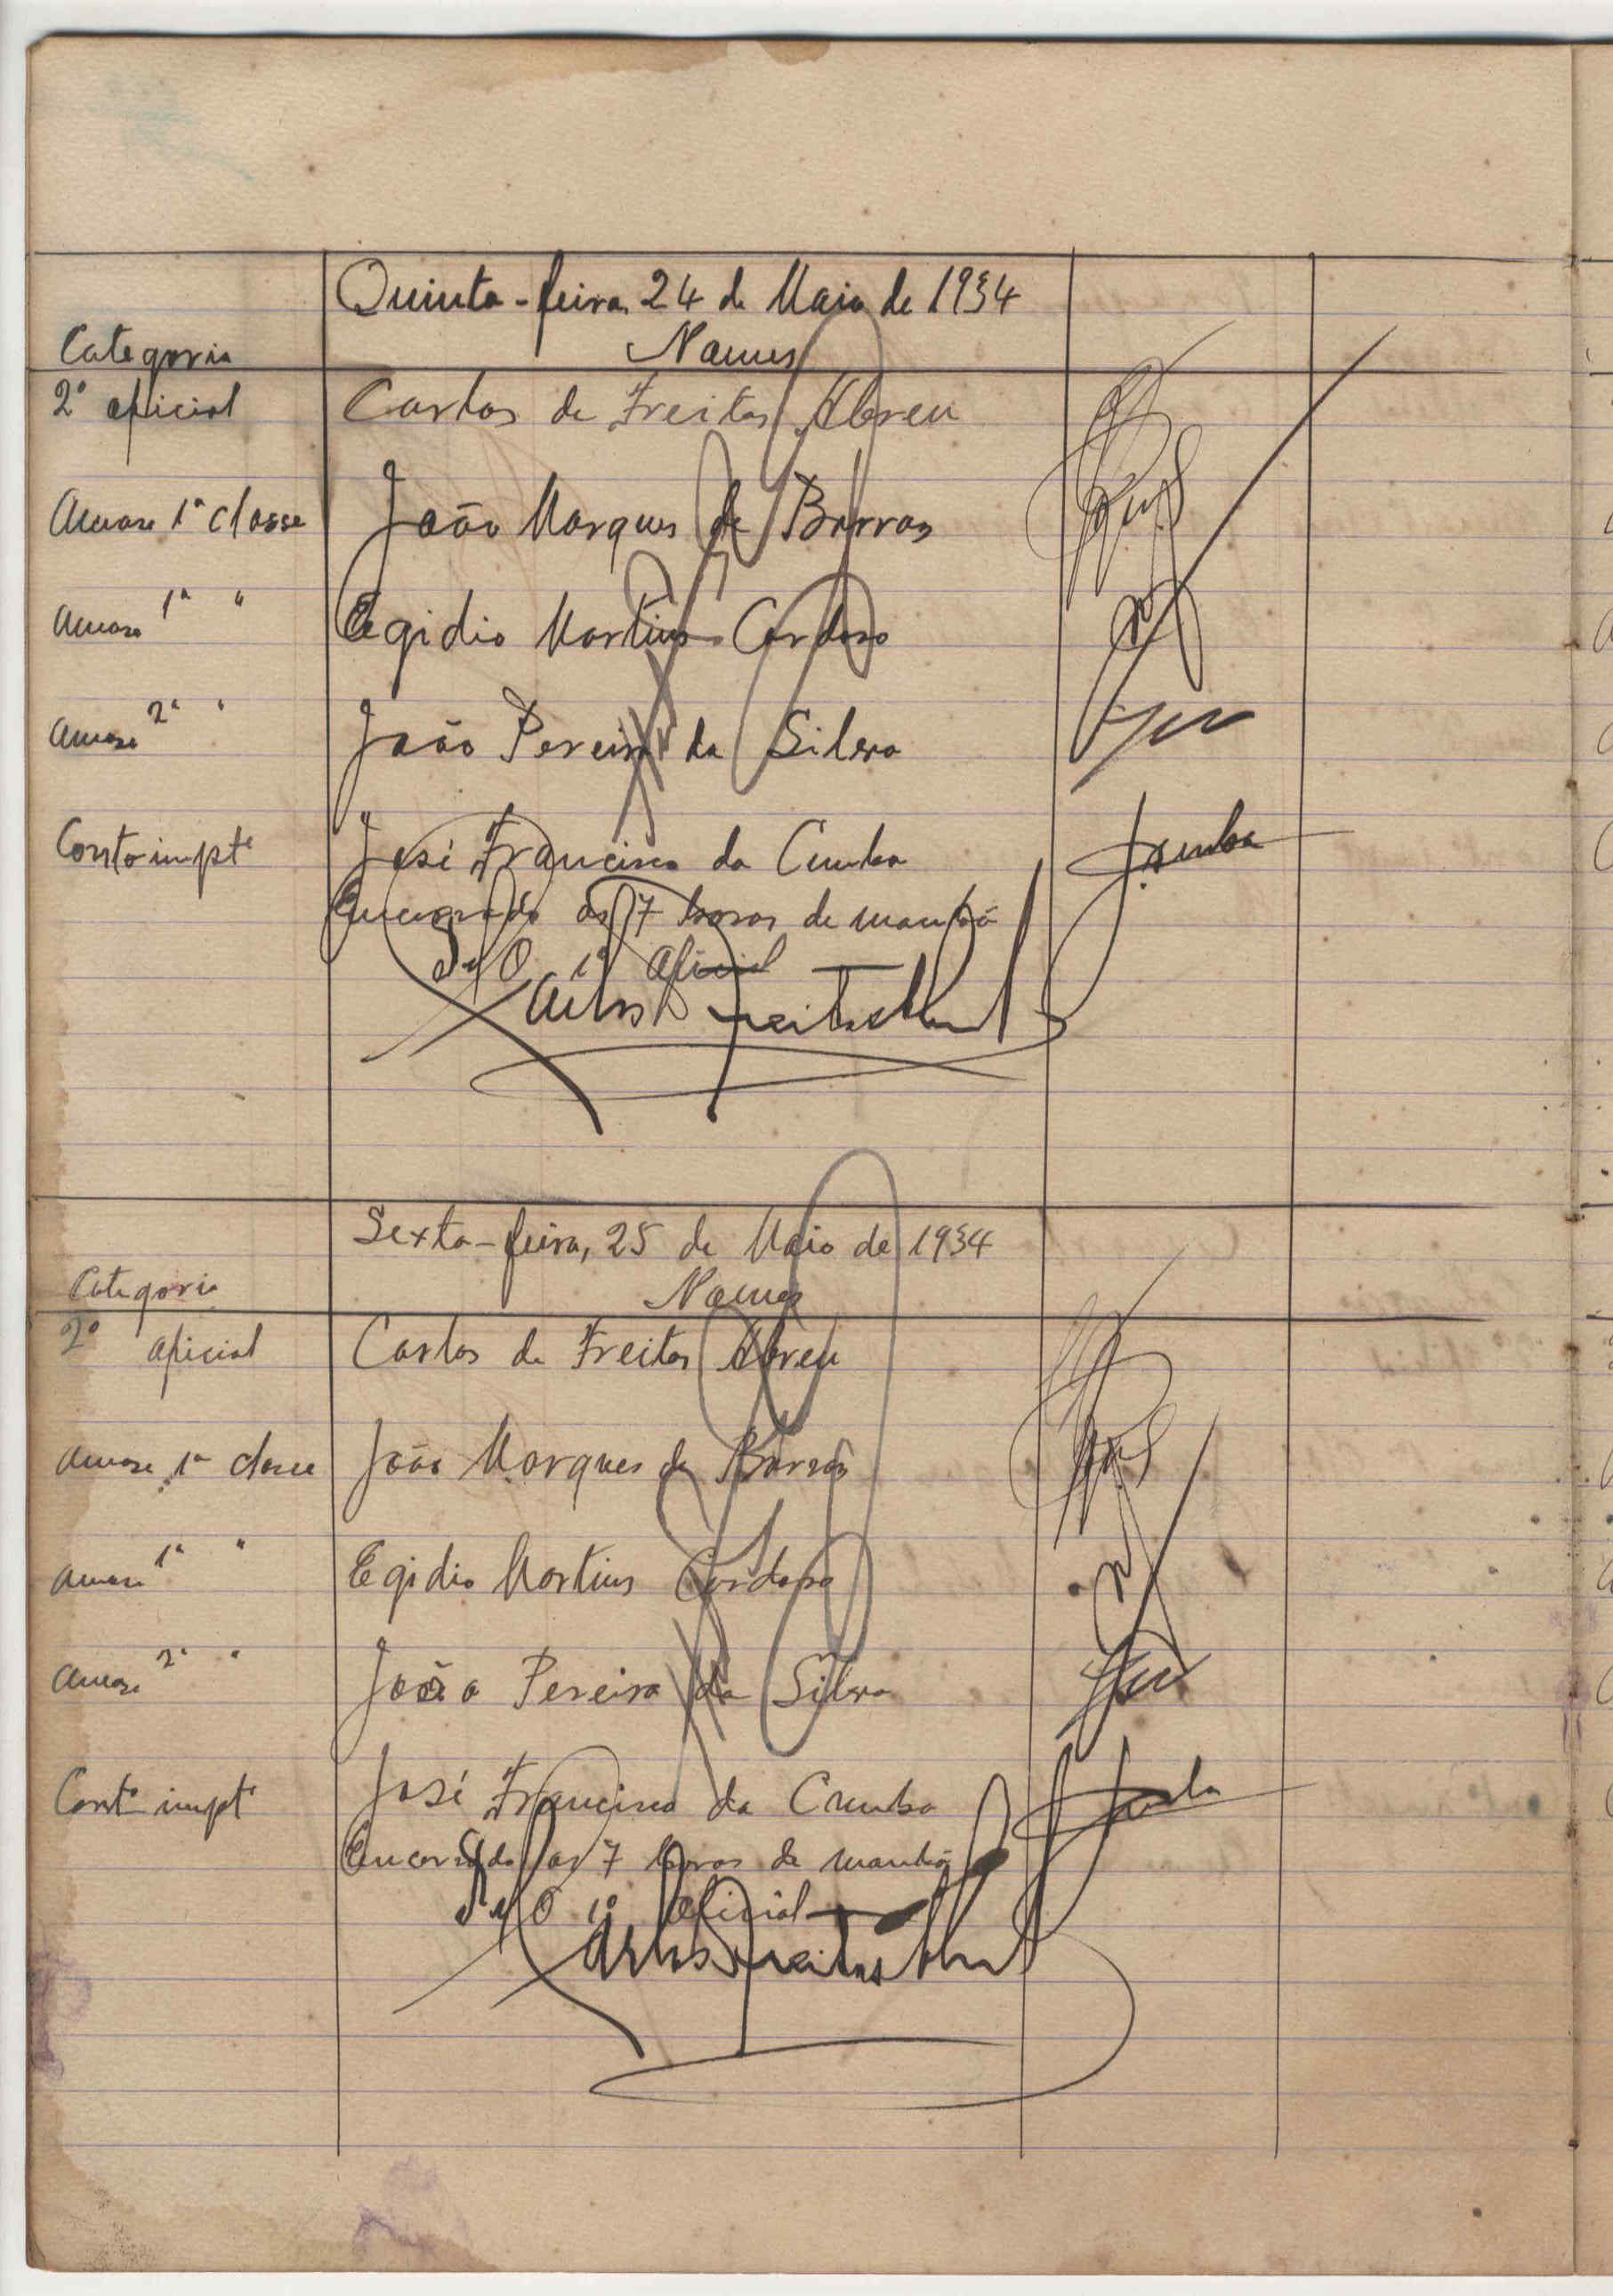 Quinta-feira, 24 de Maio de 1934
Categoria Nomes
2º oficial Carlos de Freitas Abreu
1ª classe João Marques de Barros
1ª " Egidio Martins Cardoso
2ª " João Pereira da Silva
José Francisco da Cunha
Encerrado às 7 horas de manhã
O 1º Oficial
Carlos Freitas Abreu
Sexta-feira, 25 de Maio de 1934
Categoria Nomes
2º oficial Carlos de Freitas Abreu
1ª classe João Marques de Barros
1ª " Egidio Martins Cardoso
2ª " João Pereira da Silva
José Francisco da Cunha
Encerrado as 7 horas de manhã
O 1º Oficial
Carlos Freitas Abreu